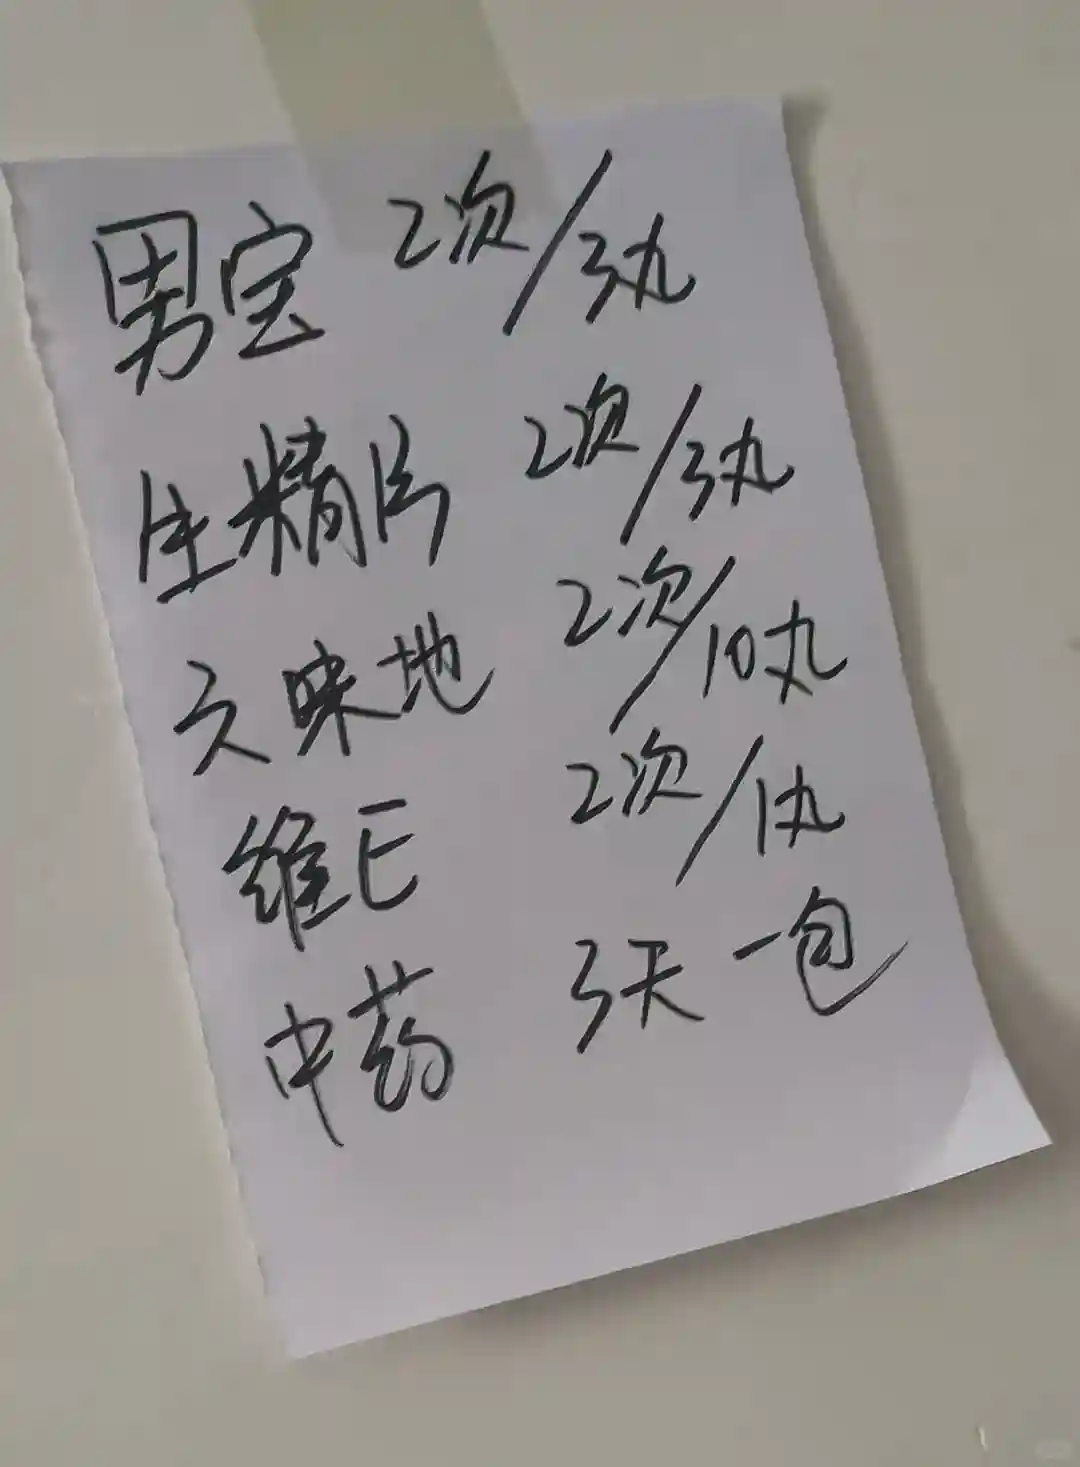 男宝 2次/3丸
生精片 2次/3丸
六味地 2次/10丸
维E 2次/1丸
中药 3天一包